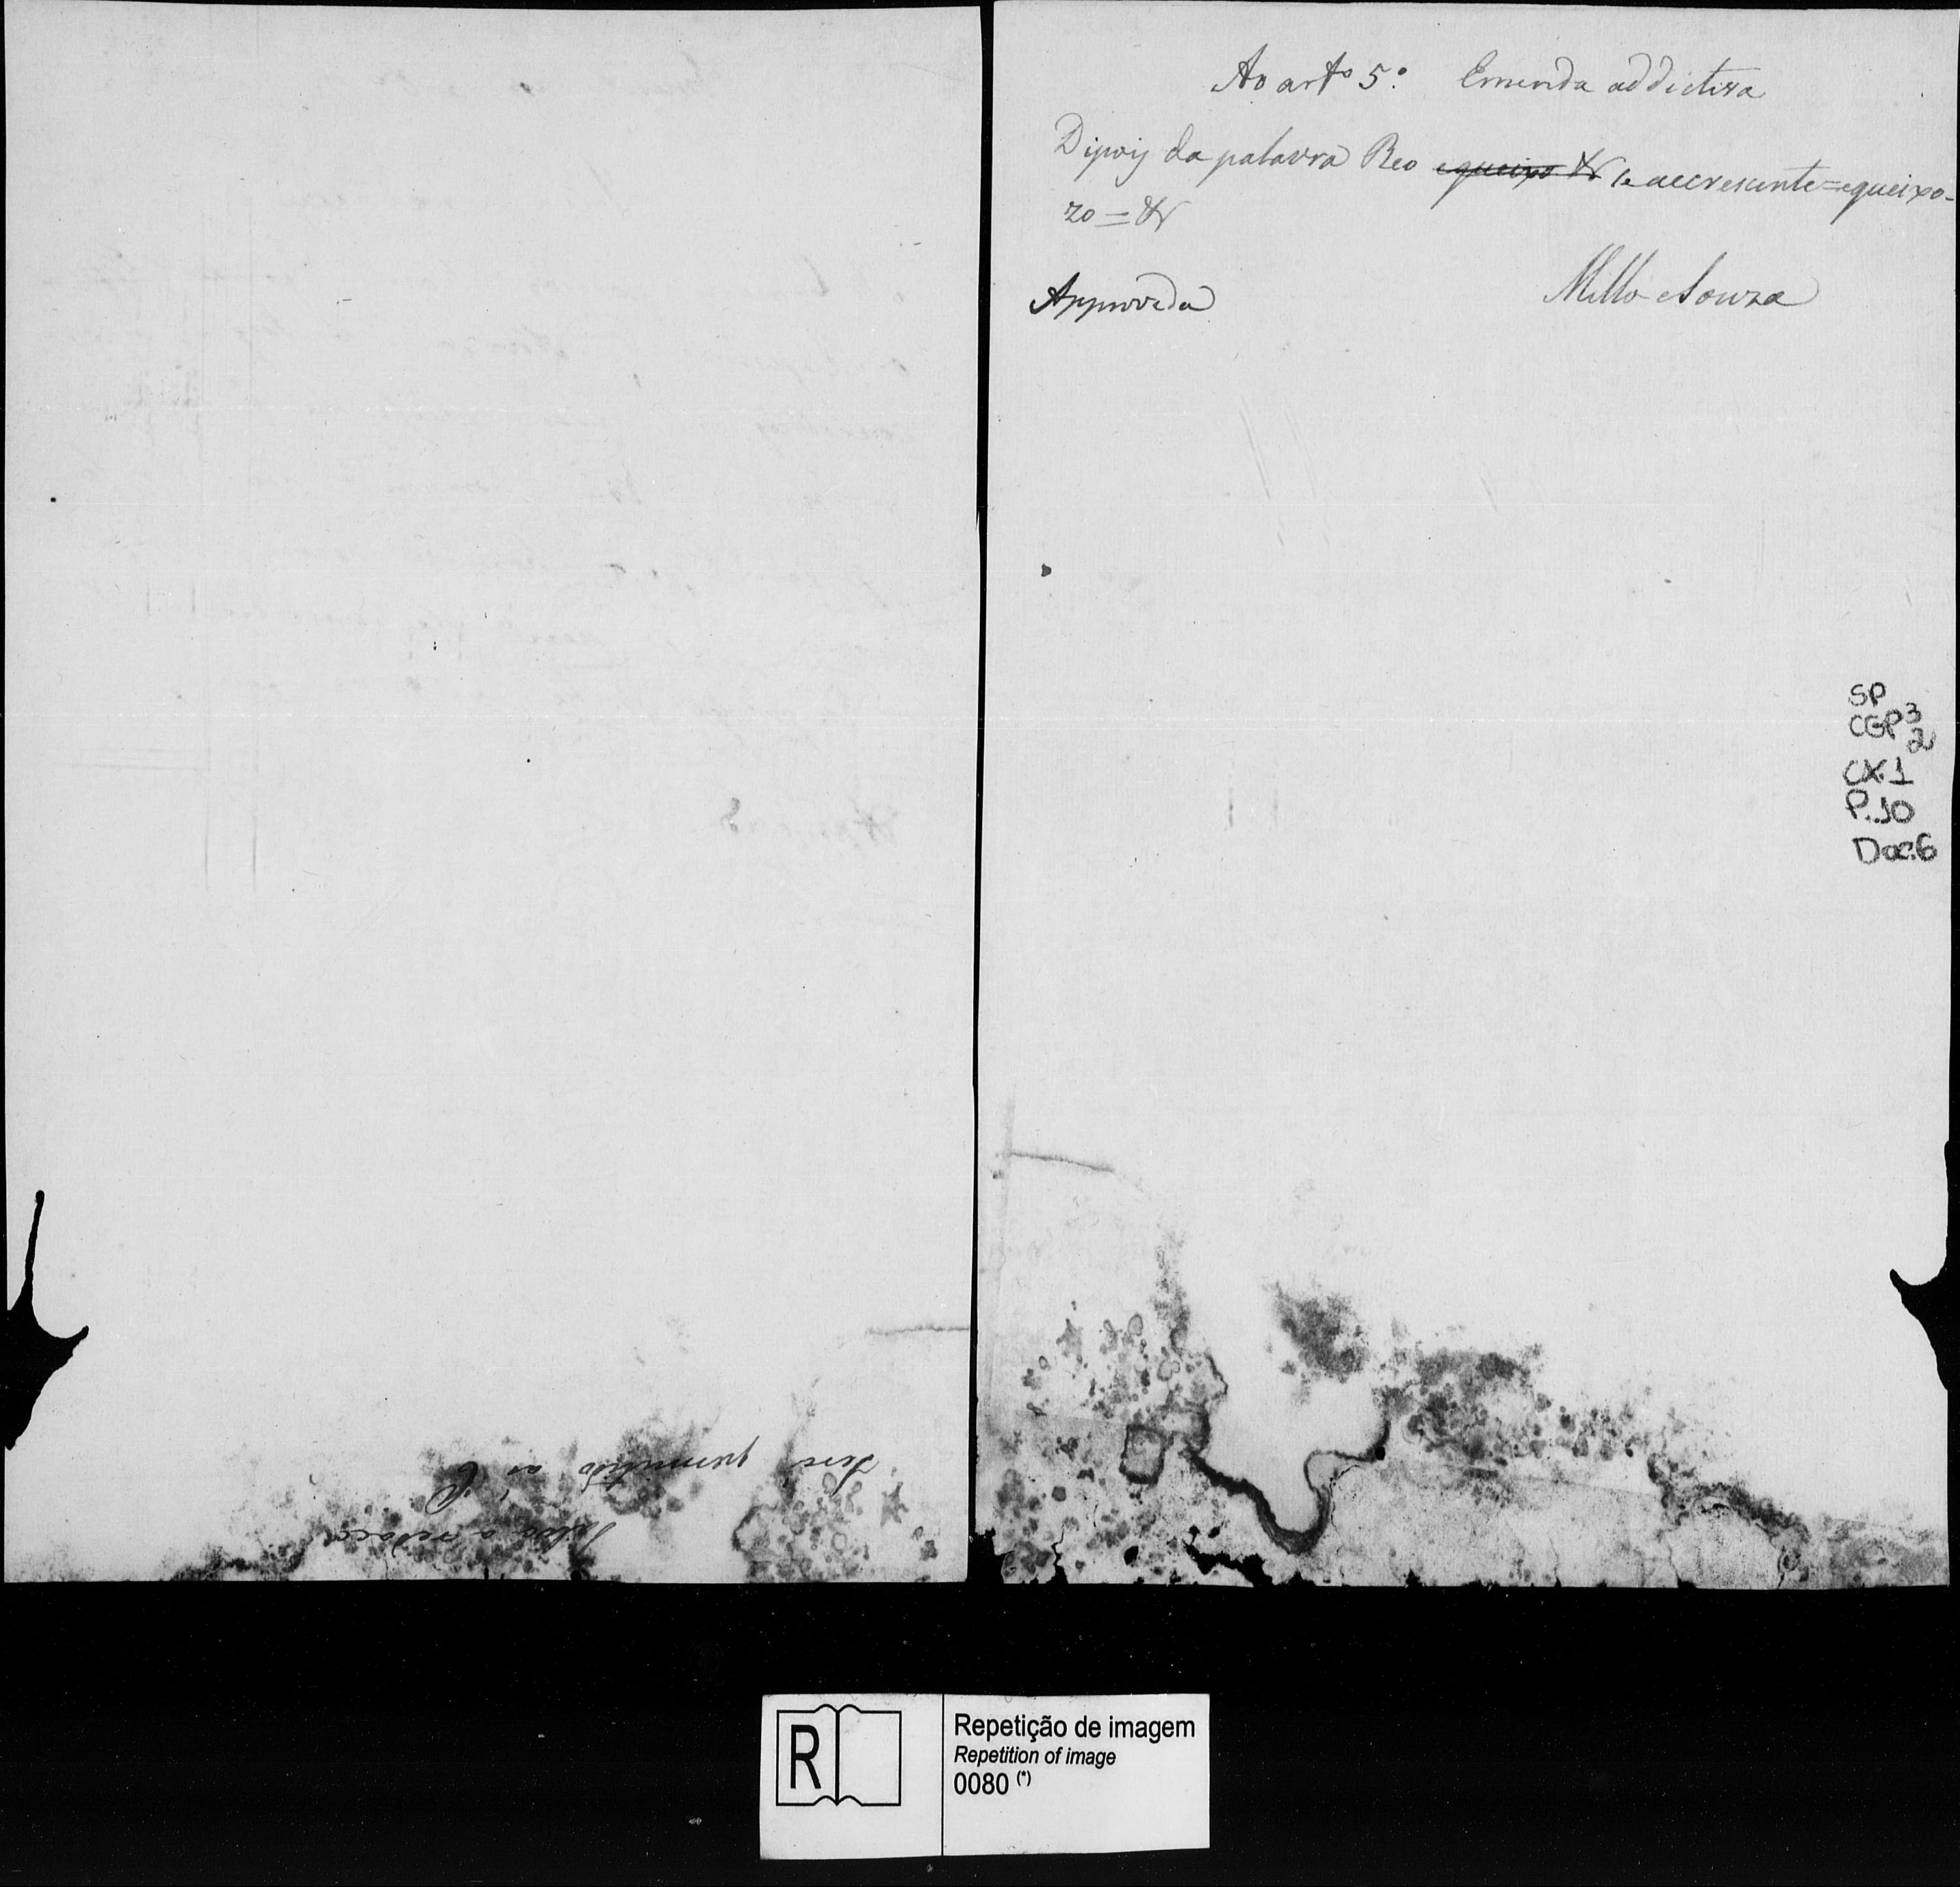 Ao artº 5º Emenda addictiva
Dipois da palavra Reo equeixo &r se accrescente = equeixo-
zo = &r
Approvada
Mello e Souza
SP
CGP 3
2
CX.1
P.10
Doc.6
Será permitido ao
R
Repetição de imagem
Repetition of image
0080 (*)